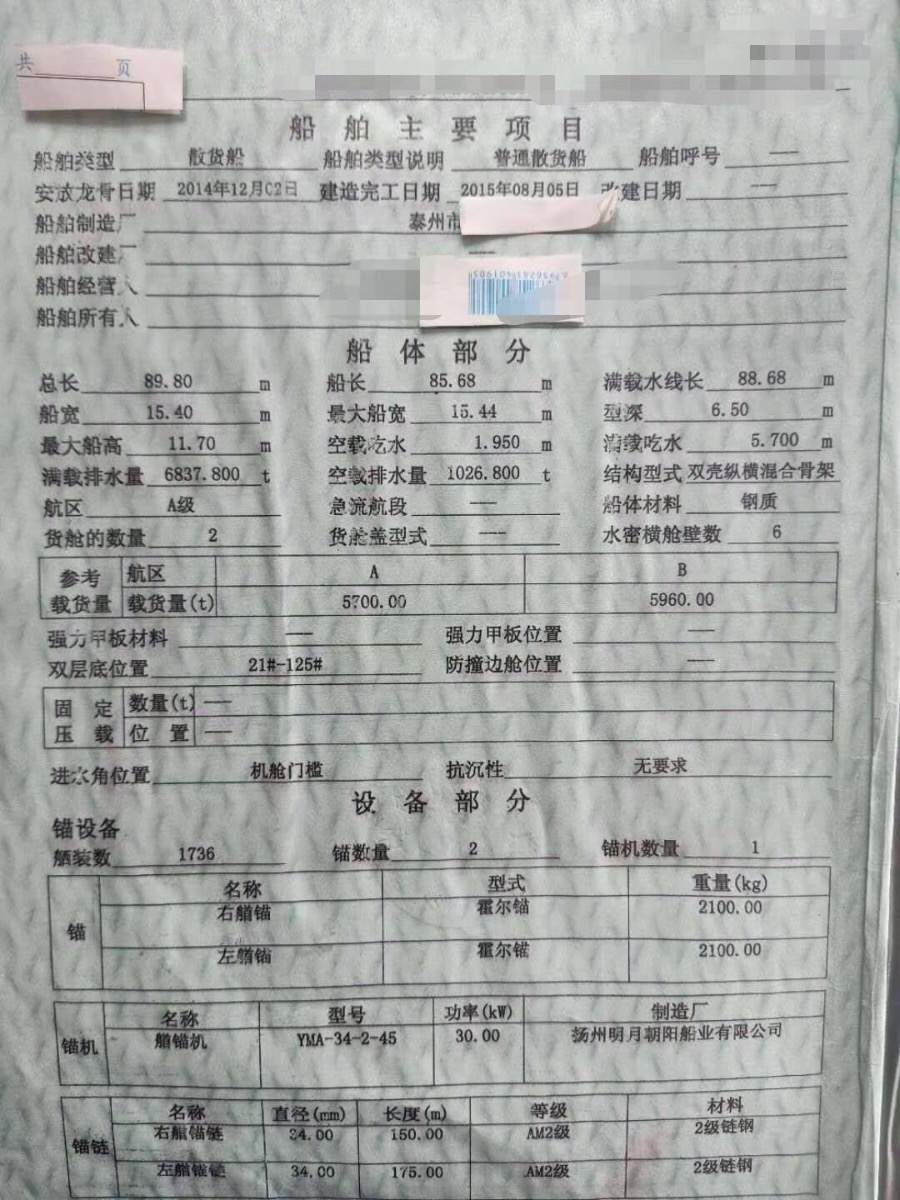 共 页
船舶主要项目
船舶类型 散货船 船舶类型说明 普通散货船 船舶呼号 ——
安放龙骨日期 2014年12月02日 建造完工日期 2015年08月05日 改建日期 ——
船舶制造厂 泰州市
船舶改建厂
船舶经营人
船舶所有人
船体部分
总长 89.80 m 船长 85.68 m 满载水线长 88.68 m
船宽 15.40 m 最大船宽 15.44 m 型深 6.50 m
最大船高 11.70 m 空载吃水 1.950 m 满载吃水 5.700 m
满载排水量 6837.800 t 空载排水量 1026.800 t 结构型式 双壳纵横混合骨架
航区 A级 急流航段 —— 船体材料 钢质
货舱的数量 2 货舱盖型式 —— 水密横舱壁数 6
参考载货量 航区 A B
载货量(t) 5700.00 5960.00
强力甲板材料 —— 强力甲板位置 ——
双层底位置 21#-125# 防撞边舱位置 ——
固定压载 数量(t) ——
位置 ——
进水角位置 机舱门槛 抗沉性 无要求
设备部分
锚设备
舾装数 1736 锚数量 2 锚机数量 1
锚 名称 型式 重量(kg)
右艏锚 霍尔锚 2100.00
左艏锚 霍尔锚 2100.00
锚机 名称 型号 功率(kW) 制造厂
艏锚机 YMA-34-2-45 30.00 扬州明月朝阳船业有限公司
锚链 名称 直径(mm) 长度(m) 等级 材料
右艏锚链 34.00 150.00 AM2级 2级链钢
左艏锚链 34.00 175.00 AM2级 2级链钢